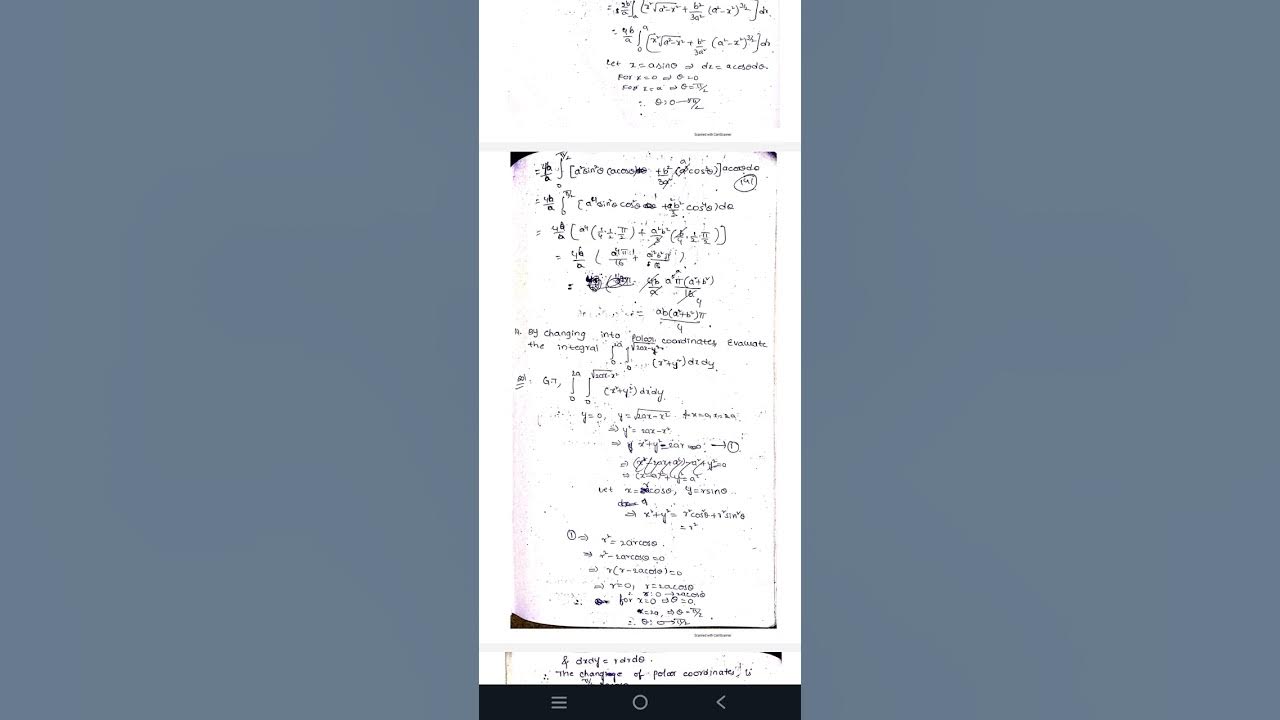 = 2b/a ∫ [x²√a²-x² + b²/3a² (a²-x²)^3/2] dx.
= 4b/a ∫₀ᵃ [x²√a²-x² + b²/3a² (a²-x²)^3/2] dx
Let x = asinθ ⇒ dx = acosθdθ.
For x=0 ⇒ θ=0
For x=a ⇒ θ=π/2
∴ θ: 0→π/2
Scanned with CamScanner
= 4b/a ∫₀^π/2 [a²sin²θ(acosθ) + b²/3a² (a³cos³θ)] acosθdθ
= 4b/a ∫₀^π/2 [a⁴sin²θcos²θ + a²b²/3 cos⁴θ] dθ
= 4b/a [a⁴(1/4·1/2·π/2) + a²b²/3 (3/4·1/2·π/2)]
= 4b/a (a⁴π/16 + a²b²π/16)
= 4b/a a²π(a²+b²)/16 4
= ab(a²+b²)π/4.
By changing into polar coordinates, Evaluate
the integral ∫₀^2a ∫₀^√2ax-x² (x²+y²)dxdy.
Sol: G.T, ∫₀^2a ∫₀^√2ax-x² (x²+y²)dxdy.
y=0, y=√2ax-x² & x=0, x=2a
⇒ y²=2ax-x²
⇒ x²+y²=2ax →①
⇒ (x²-2ax+a²)-a²+y²=0
⇒ (x-a)²+y²=a²
Let x=rcosθ, y=rsinθ
dx=
⇒ x²+y² = r²cos²θ+r²sin²θ
= r²
① ⇒ r²=2arcosθ.
⇒ r²-2arcosθ=0
⇒ r(r-2acosθ)=0
⇒ r=0, r=2acosθ
r: 0→2acosθ
∴ for x=0 ⇒ θ=0.
x=2a, ⇒ θ=π/2
∴ θ: 0→π/2
Scanned with CamScanner
& dxdy = rdrdθ.
∴ The change of polar coordinates, is